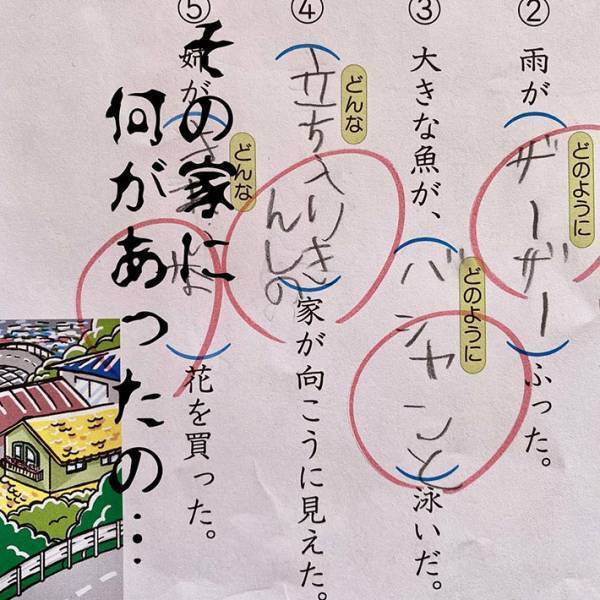 ②
雨が(ザーザー)ふった。
どのように
③
大きな魚が、(バシャンと)泳いだ。
どのように
④
(立ち入りきんしの)家が向こうに見えた。
どんな
⑤
姉が( な)花を買った。
どんな
その家に
何があったの…